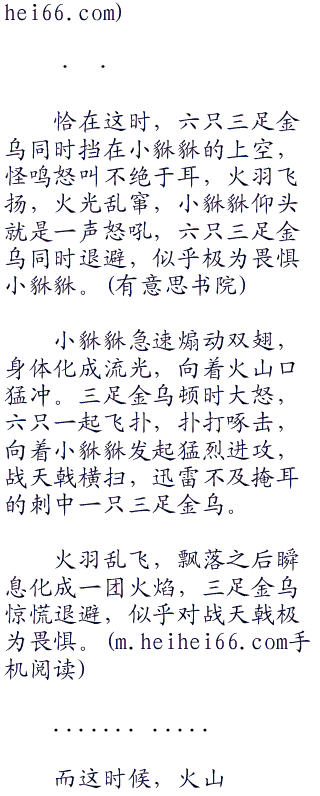 hei66.com)
. .
恰在这时，六只三足金
乌同时挡在小貅貅的上空，
怪鸣怒叫不绝于耳，火羽飞
扬，火光乱窜，小貅貅仰头
就是一声怒吼，六只三足金
乌同时退避，似乎极为畏惧
小貅貅。(有意思书院)
小貅貅急速煽动双翅，
身体化成流光，向着火山口
猛冲。三足金乌顿时大怒，
六只一起飞扑，扑打啄击，
向着小貅貅发起猛烈进攻，
战天戟横扫，迅雷不及掩耳
的刺中一只三足金乌。
火羽乱飞，飘落之后瞬
息化成一团火焰，三足金乌
惊慌退避，似乎对战天戟极
为畏惧。(m.heihei66.com手
机阅读)
....... .....
而这时候，火山